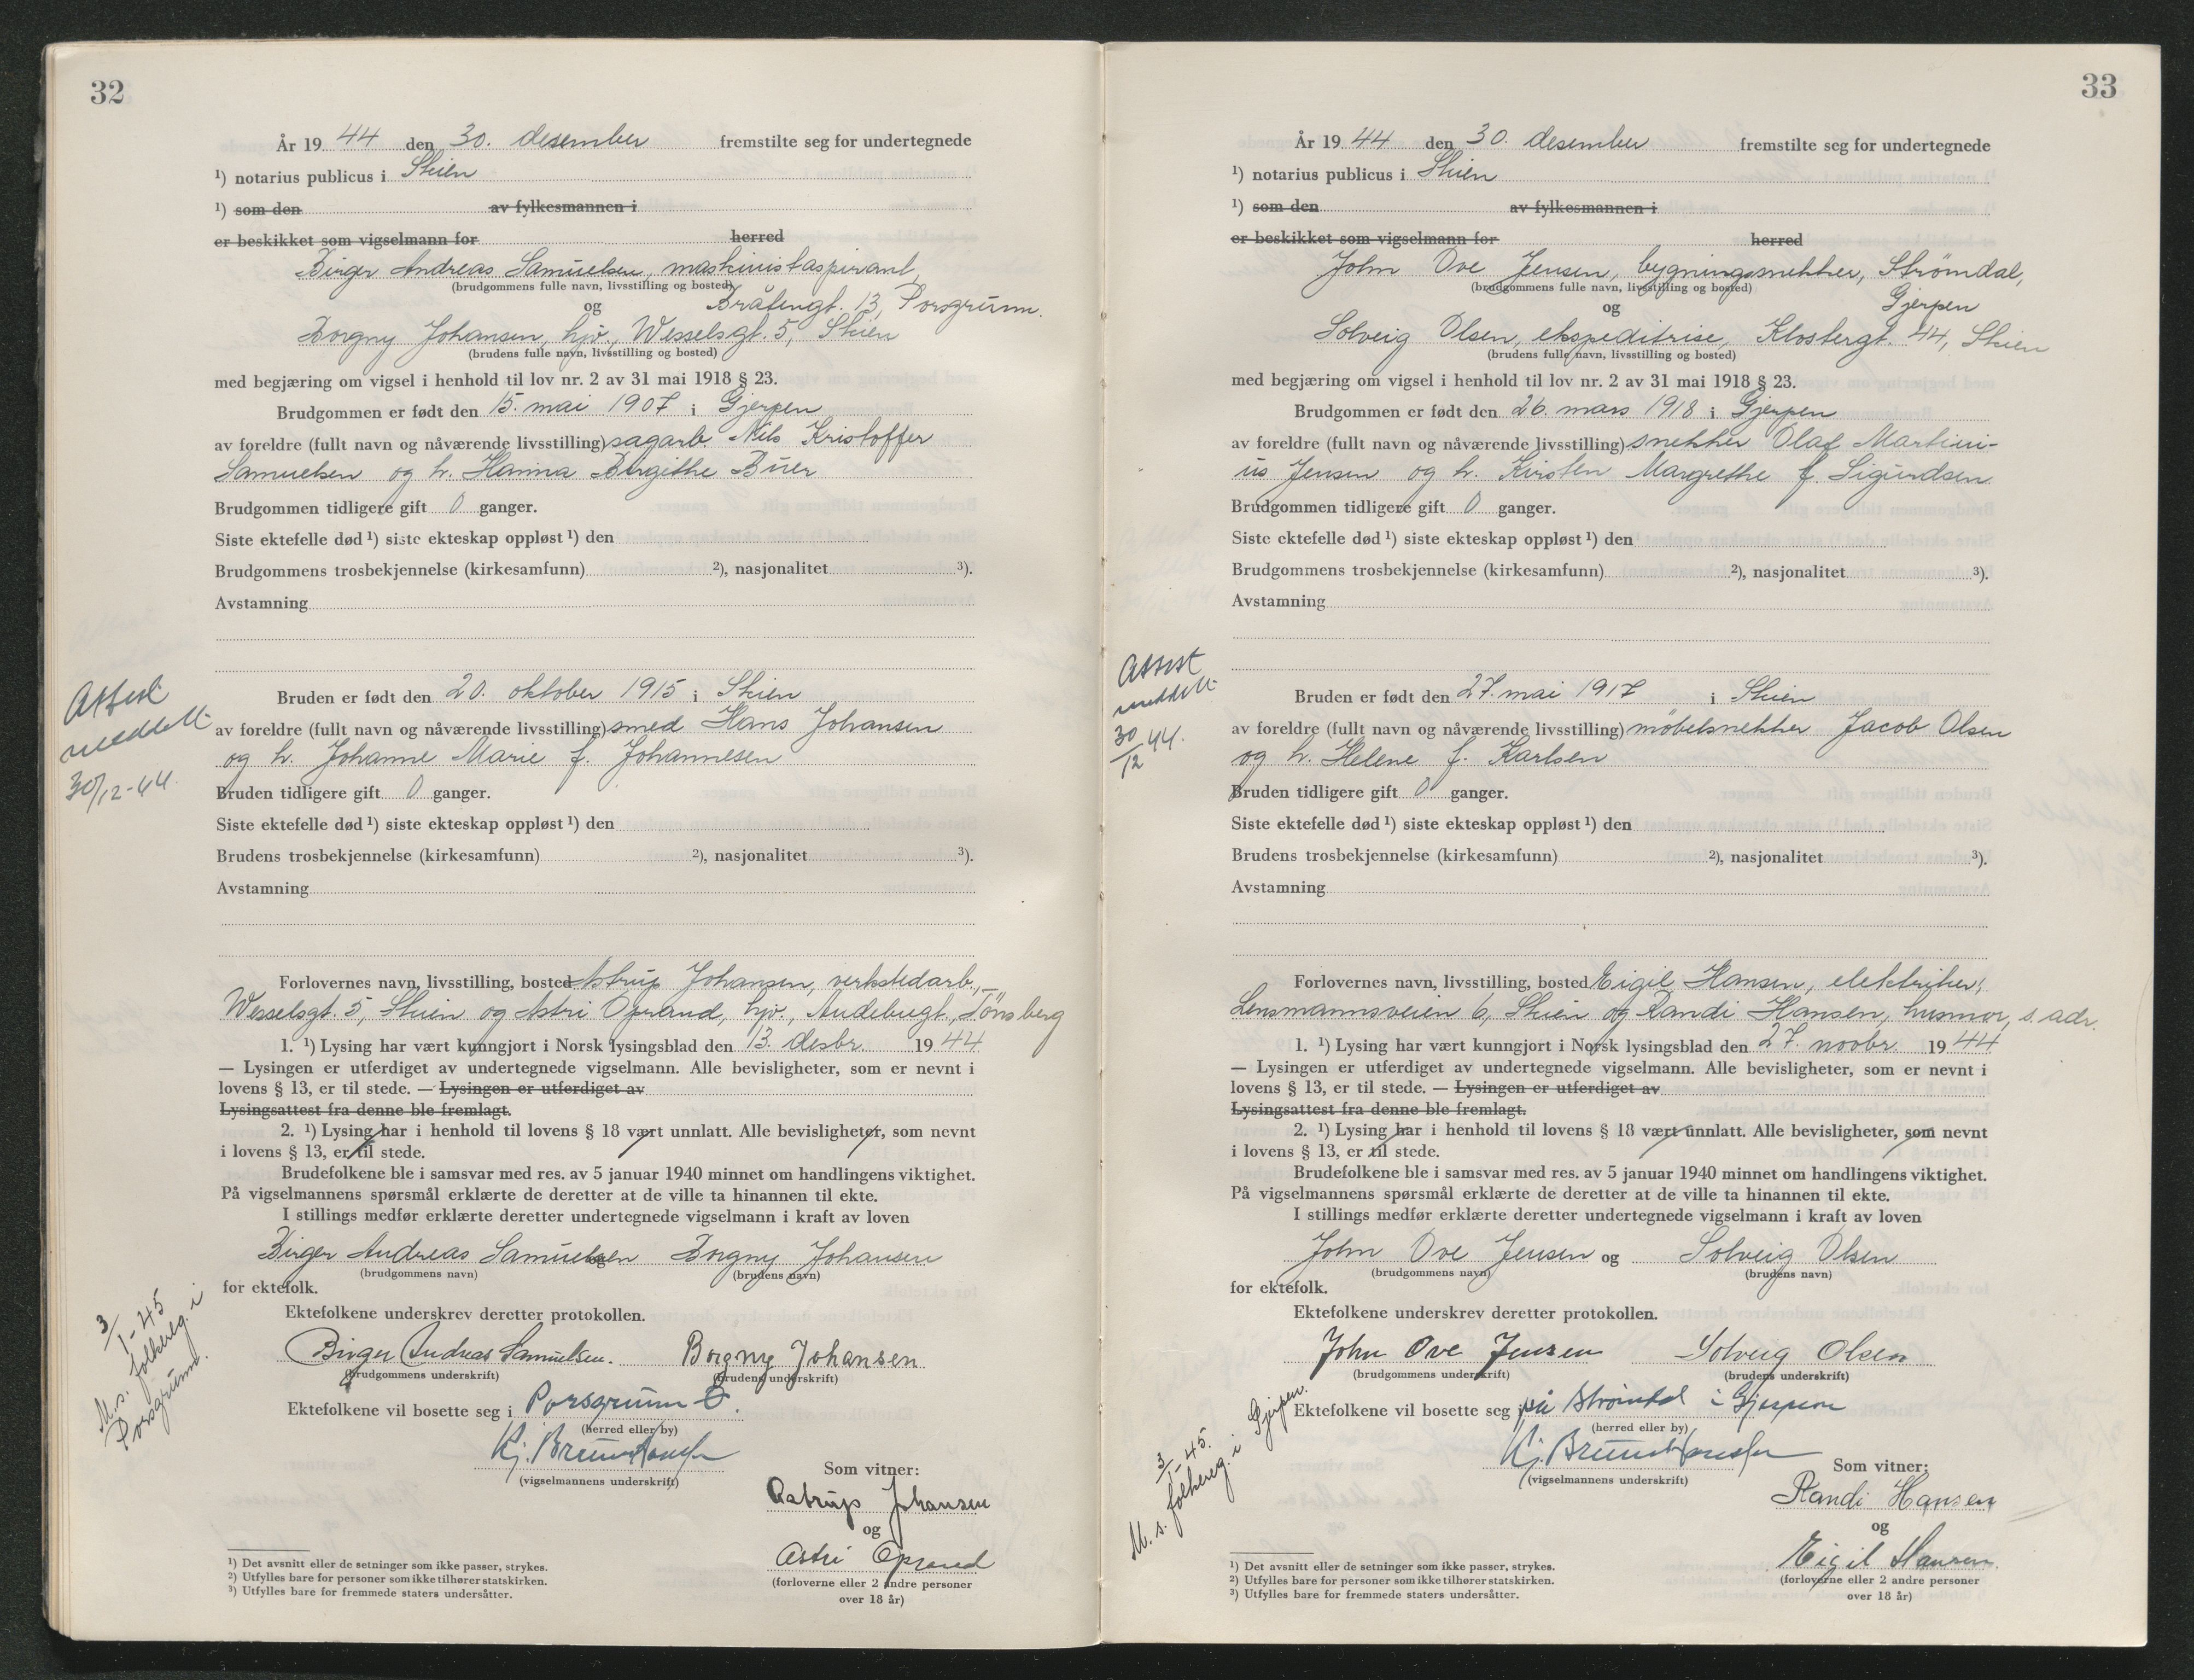 32
År 19 44 den 30. desember fremstilte seg for undertegnede
¹) notarius publicus i Skien
¹) som den av fylkesmannen i
er beskikket som vigselmann for herred
Birger Andreas Samuelsen, maskinistaspirant,
(brudgommens fulle navn, livsstilling og bosted)
og Bråtengt. 13, Porsgrunn.
Borgny Johansen, hjv., Wesselsgt. 5, Skien
(brudens fulle navn, livsstilling og bosted)
med begjæring om vigsel i henhold til lov nr. 2 av 31 mai 1918 § 23.
Brudgommen er født den 15. mai 1907 i Gjerpen
av foreldre (fullt navn og nåværende livsstilling) sagarb. Nils Kristoffer
Samuelsen og h. Hanna Birgithe Buer
Brudgommen tidligere gift 0 ganger.
Siste ektefelle død ¹) siste ekteskap oppløst ¹) den
Brudgommens trosbekjennelse (kirkesamfunn) ²), nasjonalitet ³).
Avstamning
Attest
meddelt
30/12-44.
Bruden er født den 20. oktober 1915 i Skien
av foreldre (fullt navn og nåværende livsstilling) smed Hans Johansen
og h. Johanne Marie f. Johannesen
Bruden tidligere gift 0 ganger.
Siste ektefelle død ¹) siste ekteskap oppløst ¹) den
Brudens trosbekjennelse (kirkesamfunn) ²), nasjonalitet ³).
Avstamning
Forlovernes navn, livsstilling, bosted Astrup Johansen, verkstedarb.,
Wesselsgt. 5, Skien og Astri Oprand, hjv., Andebugt., Tönsberg
1. ¹) Lysing har vært kunngjort i Norsk lysingsblad den 13. desbr. 19 44
— Lysingen er utferdiget av undertegnede vigselmann. Alle bevisligheter, som er nevnt i
lovens § 13, er til stede. — Lysingen er utferdiget av
Lysingsattest fra denne ble fremlagt.
2. ¹) Lysing har i henhold til lovens § 18 vært unnlatt. Alle bevisligheter, som nevnt
i lovens § 13, er til stede.
Brudefolkene ble i samsvar med res. av 5 januar 1940 minnet om handlingens viktighet.
På vigselmannens spørsmål erklærte de deretter at de ville ta hinannen til ekte.
I stillings medfør erklærte deretter undertegnede vigselmann i kraft av loven
Birger Andreas Samuelsen og Borgny Johansen
(brudgommens navn) (brudens navn)
for ektefolk.
Ektefolkene underskrev deretter protokollen.
Birger Andreas Samuelsen. Borgny Johansen
(brudgommens underskrift) (brudens underskrift)
Ektefolkene vil bosette seg i Porsgrunn
(herred eller by)
3/1-45
M. s. folkereg. i
Porsgrunn.
(vigselmannens underskrift)
Som vitner:
Astrup Johansen
og
Astri Oprand
(forloverne eller 2 andre personer
over 18 år)
¹) Det avsnitt eller de setninger som ikke passer, strykes.
²) Utfylles bare for personer som ikke tilhører statskirken.
³) Utfylles bare for fremmede staters undersåtter.
33
År 19 44 den 30. desember fremstilte seg for undertegnede
¹) notarius publicus i Skien
¹) som den av fylkesmannen i
er beskikket som vigselmann for herred
John Ove Jensen, bygningssnekker, Strömdal,
(brudgommens fulle navn, livsstilling og bosted)
og Gjerpen
Solveig Olsen, ekspeditrise, Klostergt. 44, Skien
(brudens fulle navn, livsstilling og bosted)
med begjæring om vigsel i henhold til lov nr. 2 av 31 mai 1918 § 23.
Brudgommen er født den 26. mars 1918 i Gjerpen
av foreldre (fullt navn og nåværende livsstilling) snekker Olaf Martini-
us Jensen og h. Kirsten Margrethe f. Sigurdsen
Brudgommen tidligere gift 0 ganger.
Siste ektefelle død ¹) siste ekteskap oppløst ¹) den
Brudgommens trosbekjennelse (kirkesamfunn) ²), nasjonalitet ³).
Avstamning
Attest
meddelt
30/12 44.
Bruden er født den 27. mai 1917 i Skien
av foreldre (fullt navn og nåværende livsstilling) möbelsnekker Jacob Olsen
og h. Helene f. Karlsen
Bruden tidligere gift 0 ganger.
Siste ektefelle død ¹) siste ekteskap oppløst ¹) den
Brudens trosbekjennelse (kirkesamfunn) ²), nasjonalitet ³).
Avstamning
Forlovernes navn, livsstilling, bosted Eigil Hansen, elektriker,
Lensmannsveien 6, Skien og Randi Hansen, husmor, s. adr.
1. ¹) Lysing har vært kunngjort i Norsk lysingsblad den 27. novbr. 19 44
— Lysingen er utferdiget av undertegnede vigselmann. Alle bevisligheter, som er nevnt i
lovens § 13, er til stede. — Lysingen er utferdiget av
Lysingsattest fra denne ble fremlagt.
2. ¹) Lysing har i henhold til lovens § 18 vært unnlatt. Alle bevisligheter, som nevnt
i lovens § 13, er til stede.
Brudefolkene ble i samsvar med res. av 5 januar 1940 minnet om handlingens viktighet.
På vigselmannens spørsmål erklærte de deretter at de ville ta hinannen til ekte.
I stillings medfør erklærte deretter undertegnede vigselmann i kraft av loven
John Ove Jensen og Solveig Olsen
(brudgommens navn) (brudens navn)
for ektefolk.
Ektefolkene underskrev deretter protokollen.
John Ove Jensen Solveig Olsen
(brudgommens underskrift) (brudens underskrift)
Ektefolkene vil bosette seg i på Strömdal i Gjerpen
(herred eller by)
3/1-45.
M. s. folkereg. i Gjerpen.
(vigselmannens underskrift)
Som vitner:
Randi Hansen
og
Eigil Hansen
(forloverne eller 2 andre personer
over 18 år)
¹) Det avsnitt eller de setninger som ikke passer, strykes.
²) Utfylles bare for personer som ikke tilhører statskirken.
³) Utfylles bare for fremmede staters undersåtter.